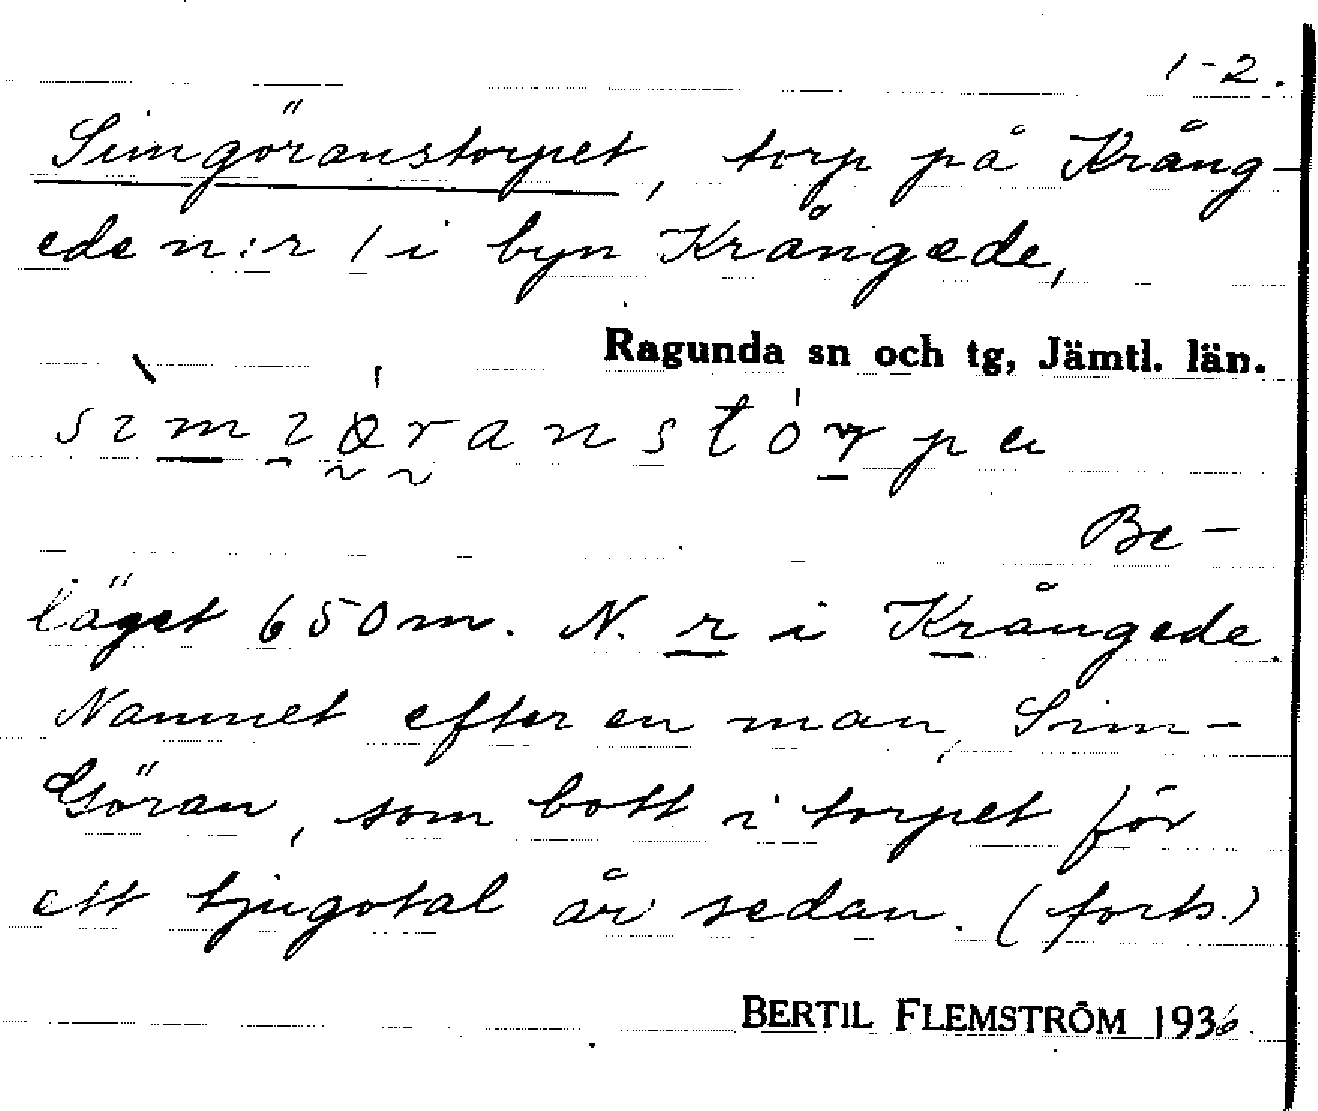 1-2.
Simgöranstorpet, torp på Kräng-
ede n:r 1 i byn Krångede,
Ragunda sn och tg, Jämtl. län.
Be-
läget 650 m. N. r i Krångede.
Namnet efter en man, Sim-
Göran, som bott i torpet för
ett tjugotal år sedan. (forts.)
BERTIL FLEMSTRÖM 1936